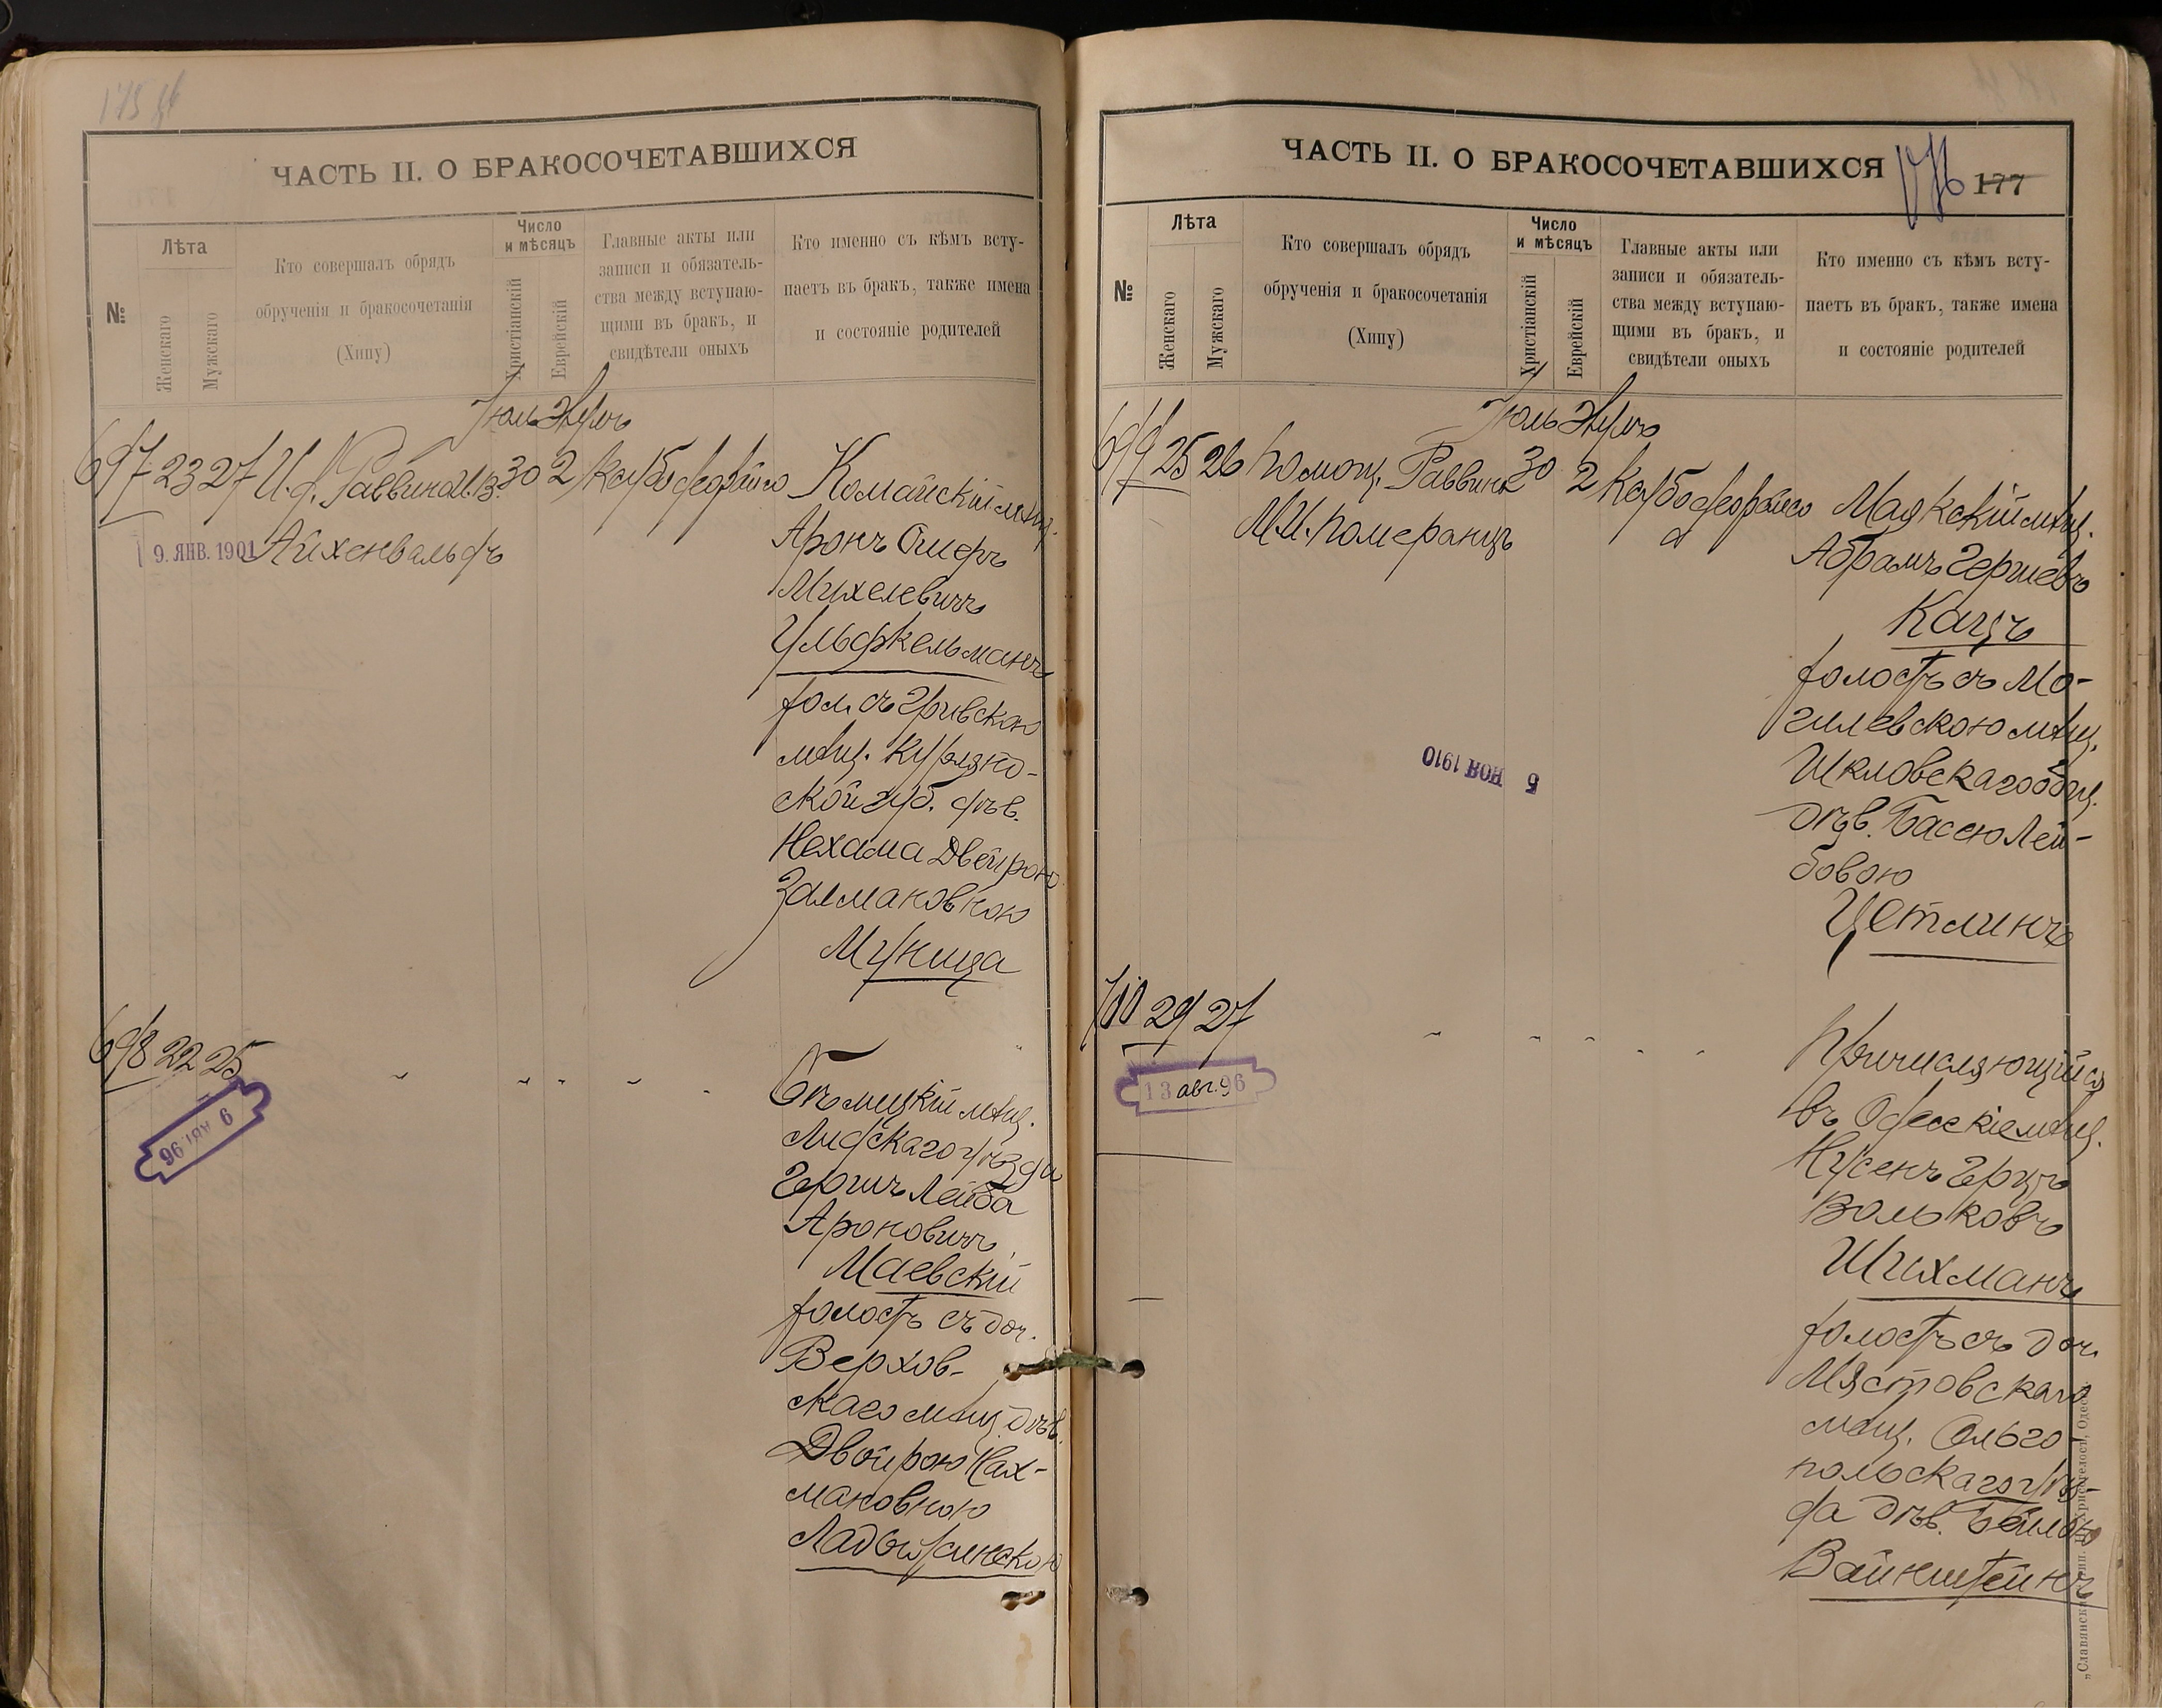 ЧАСТЬ II. О БРАКОСОЧЕТАВШИХСЯ
№
Лѣта
Женскаго
Мужскаго
Кто совершалъ обрядъ
обрученія и бракосочетанія
(Хипу)
Число
и мѣсяцъ
Христіанскій
Еврейскій
Главные акты или
записи и обязатель-
ства между вступаю-
щими въ бракъ, и
свидѣтели оныхъ
Кто именно съ кѣмъ всту-
паетъ въ бракъ, также имена
и состояніе родителей
Іюль Элулъ
697 23 27 И. д. Раввина 30 2
Айхенвальдъ
9. ЯНВ. 1901
Комайскій мѣщ.
Аронъ Ошеръ
Михелевичъ
Ульфкельманъ
хол. съ Гривскою
мѣщ. Курлянд-
ской губ. дѣв.
Нехама Двейрою
Залмановною
Муница
698 22 25
9 АВГ. 96
мѣщ.
Лидскаго уѣзда
Гершъ Лейба
Ароновичъ
Маевскій
холостъ съ доч.
Верхов-
скаго мѣщ. дѣв.
Двойрою Нах-
мановною
Ладыжинскою
ЧАСТЬ II. О БРАКОСОЧЕТАВШИХСЯ
177
№
Лѣта
Женскаго
Мужскаго
Кто совершалъ обрядъ
обрученія и бракосочетанія
(Хипу)
Число
и мѣсяцъ
Христіанскій
Еврейскій
Главные акты или
записи и обязатель-
ства между вступаю-
щими въ бракъ, и
свидѣтели оныхъ
Кто именно съ кѣмъ всту-
паетъ въ бракъ, также имена
и состояніе родителей
Іюль Элулъ
699 25 26 Помощ. Раввина 30 2
М.И. Померанцъ
5 НОЯ 1910
Маякскій мѣщ.
Абрамъ Гершевъ
Кацъ
холостъ съ Мо-
гилевскою мѣщ.
Шкловскаго общ.
дѣв. Басею Лей-
бовою
Цетлинъ
700 29 27
13 авг. 96
Причисляющійся
въ Одесскіе мѣщ.
Нусенъ Герцъ
Вольковъ
Шихманъ
холостъ съ доч.
Мястовскаго
мѣщ. Ольго
польскаго уѣз-
да дѣв. Бейлою
Вайнштейнъ